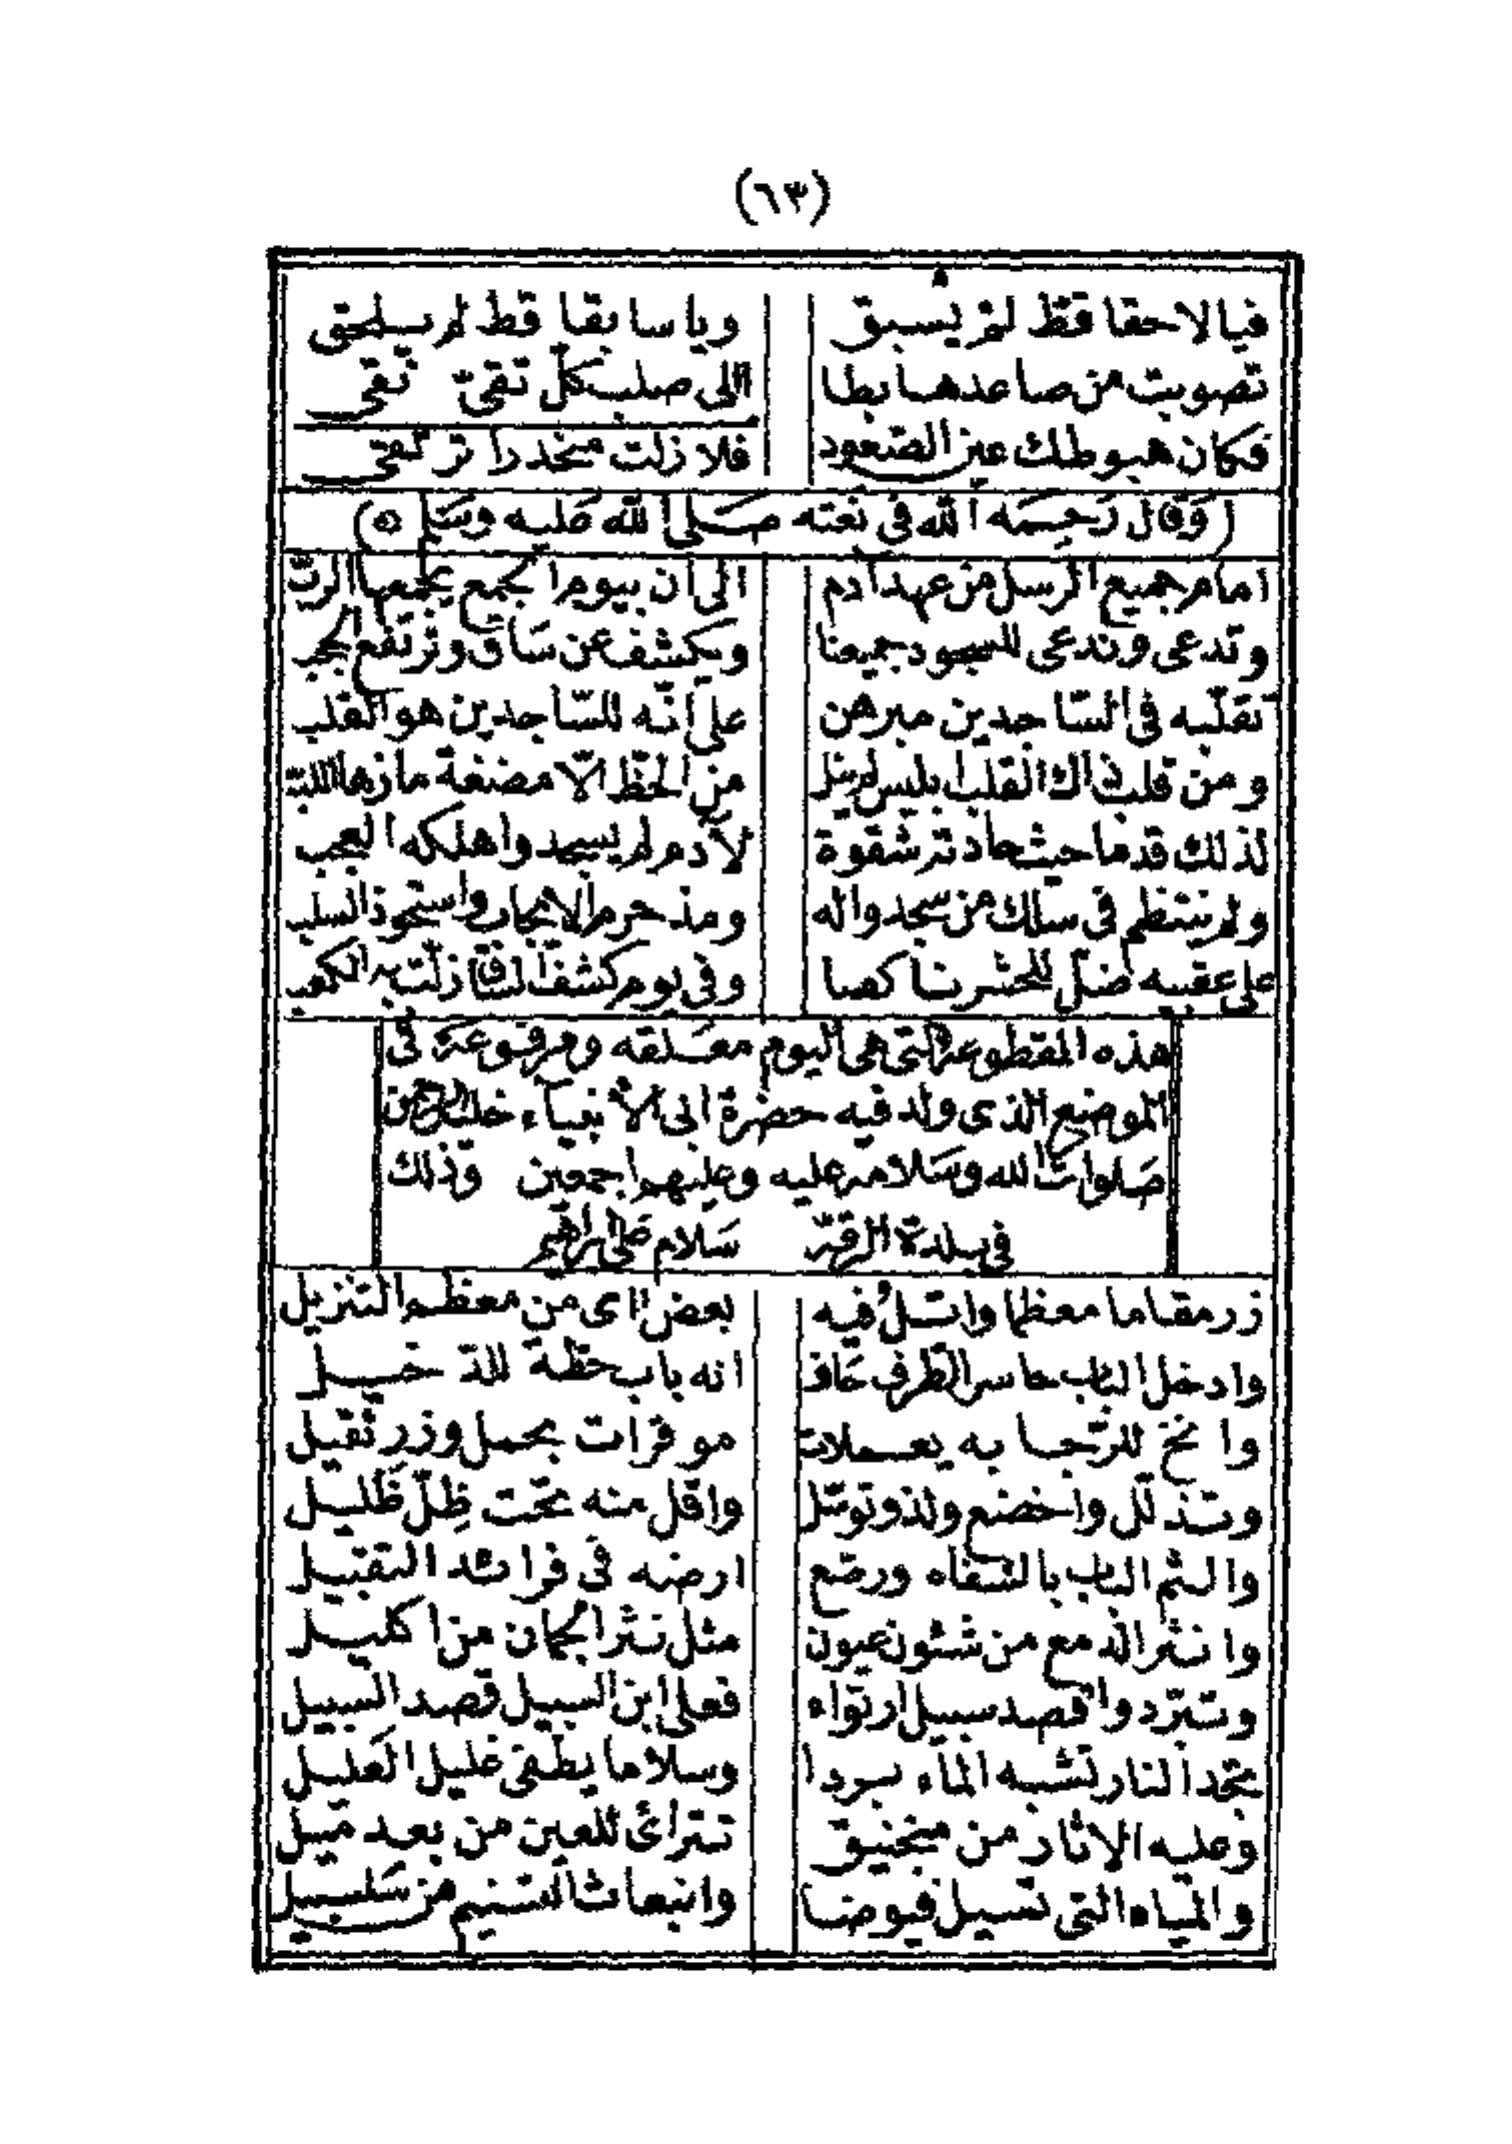 (٦٣)
فيا لاحقا قط لم يسبق ويا سابقا قط لم يلحق
تصوبت من صاعد هابطا الى صلب كل تقىّ نقى
فكان هبوطك عين الصّعود فلا زلت منحدرا ترتقى
(وَقال رَحِمَه الله فى نعته صَلى الله عَليه وسَلم)
امام جميع الرسل من عهد آدم الى ان بيوم الجمع يجمعها الربّ
وتدعى وندعى للسجود جميعنا ويكشف عن سَاق وترتفع الحجب
تقلّبه فى السّاجدين مبرهن على انّه للسّاجدين هو القلب
ومن قلب ذاك القلب ابليس لم ينل من الحظّ الّا مضغة مازها اللبّ
لذلك قدما حيث حادته شقوة لآدم لم يسجد واهلكه العجب
ولم ينتظم فى سلك من سجدوا له ومذ حرم الايجاب واستحوذ السلب
على عقبيه ضلّ للحشر ناكصا وفى يوم كشف الساق زلّت به الكعب
هذه المقطوعة التى هى اليوم معَلقه ومرفوعة فى
الموضع الذى ولد فيه حضرة ابى الانبيآء خليل الرحمن
صَلوات الله وسَلامه عليه وعليهم اجمعين وَذلك
فى بلدة الرقّه سَلام عَلى ابراهيم
زر مقاما معظما واتلُ فيه بعض اى من معظم التنزيل
وادخل الباب خاسر الطرف خاف انه باب حطة للدخيل
وانخ للرّجا به يعملات موقرات بحمل وزر ثقيل
وتذلّل واخضع ولذ وتوسّل واقل منه تحت ظِلّ ظَليل
والثم الباب بالشفاه ورصّع ارضه فى فرائد التقبيل
وانثر الدمع من شئون عيون مثل نثر الجمان من اكليل
وتبرّد واقصد سبيل ارتواء فعلى ابن السبيل قصد السبيل
تجد النار تشبه الماء بردا وسلاما يطفى غليل العَليل
وعليه الاثار من منجنيق تترائى للعين من بعد ميل
والمياه التى تسيل فيوضا وانبعاث التسنيم من سَلسبيل